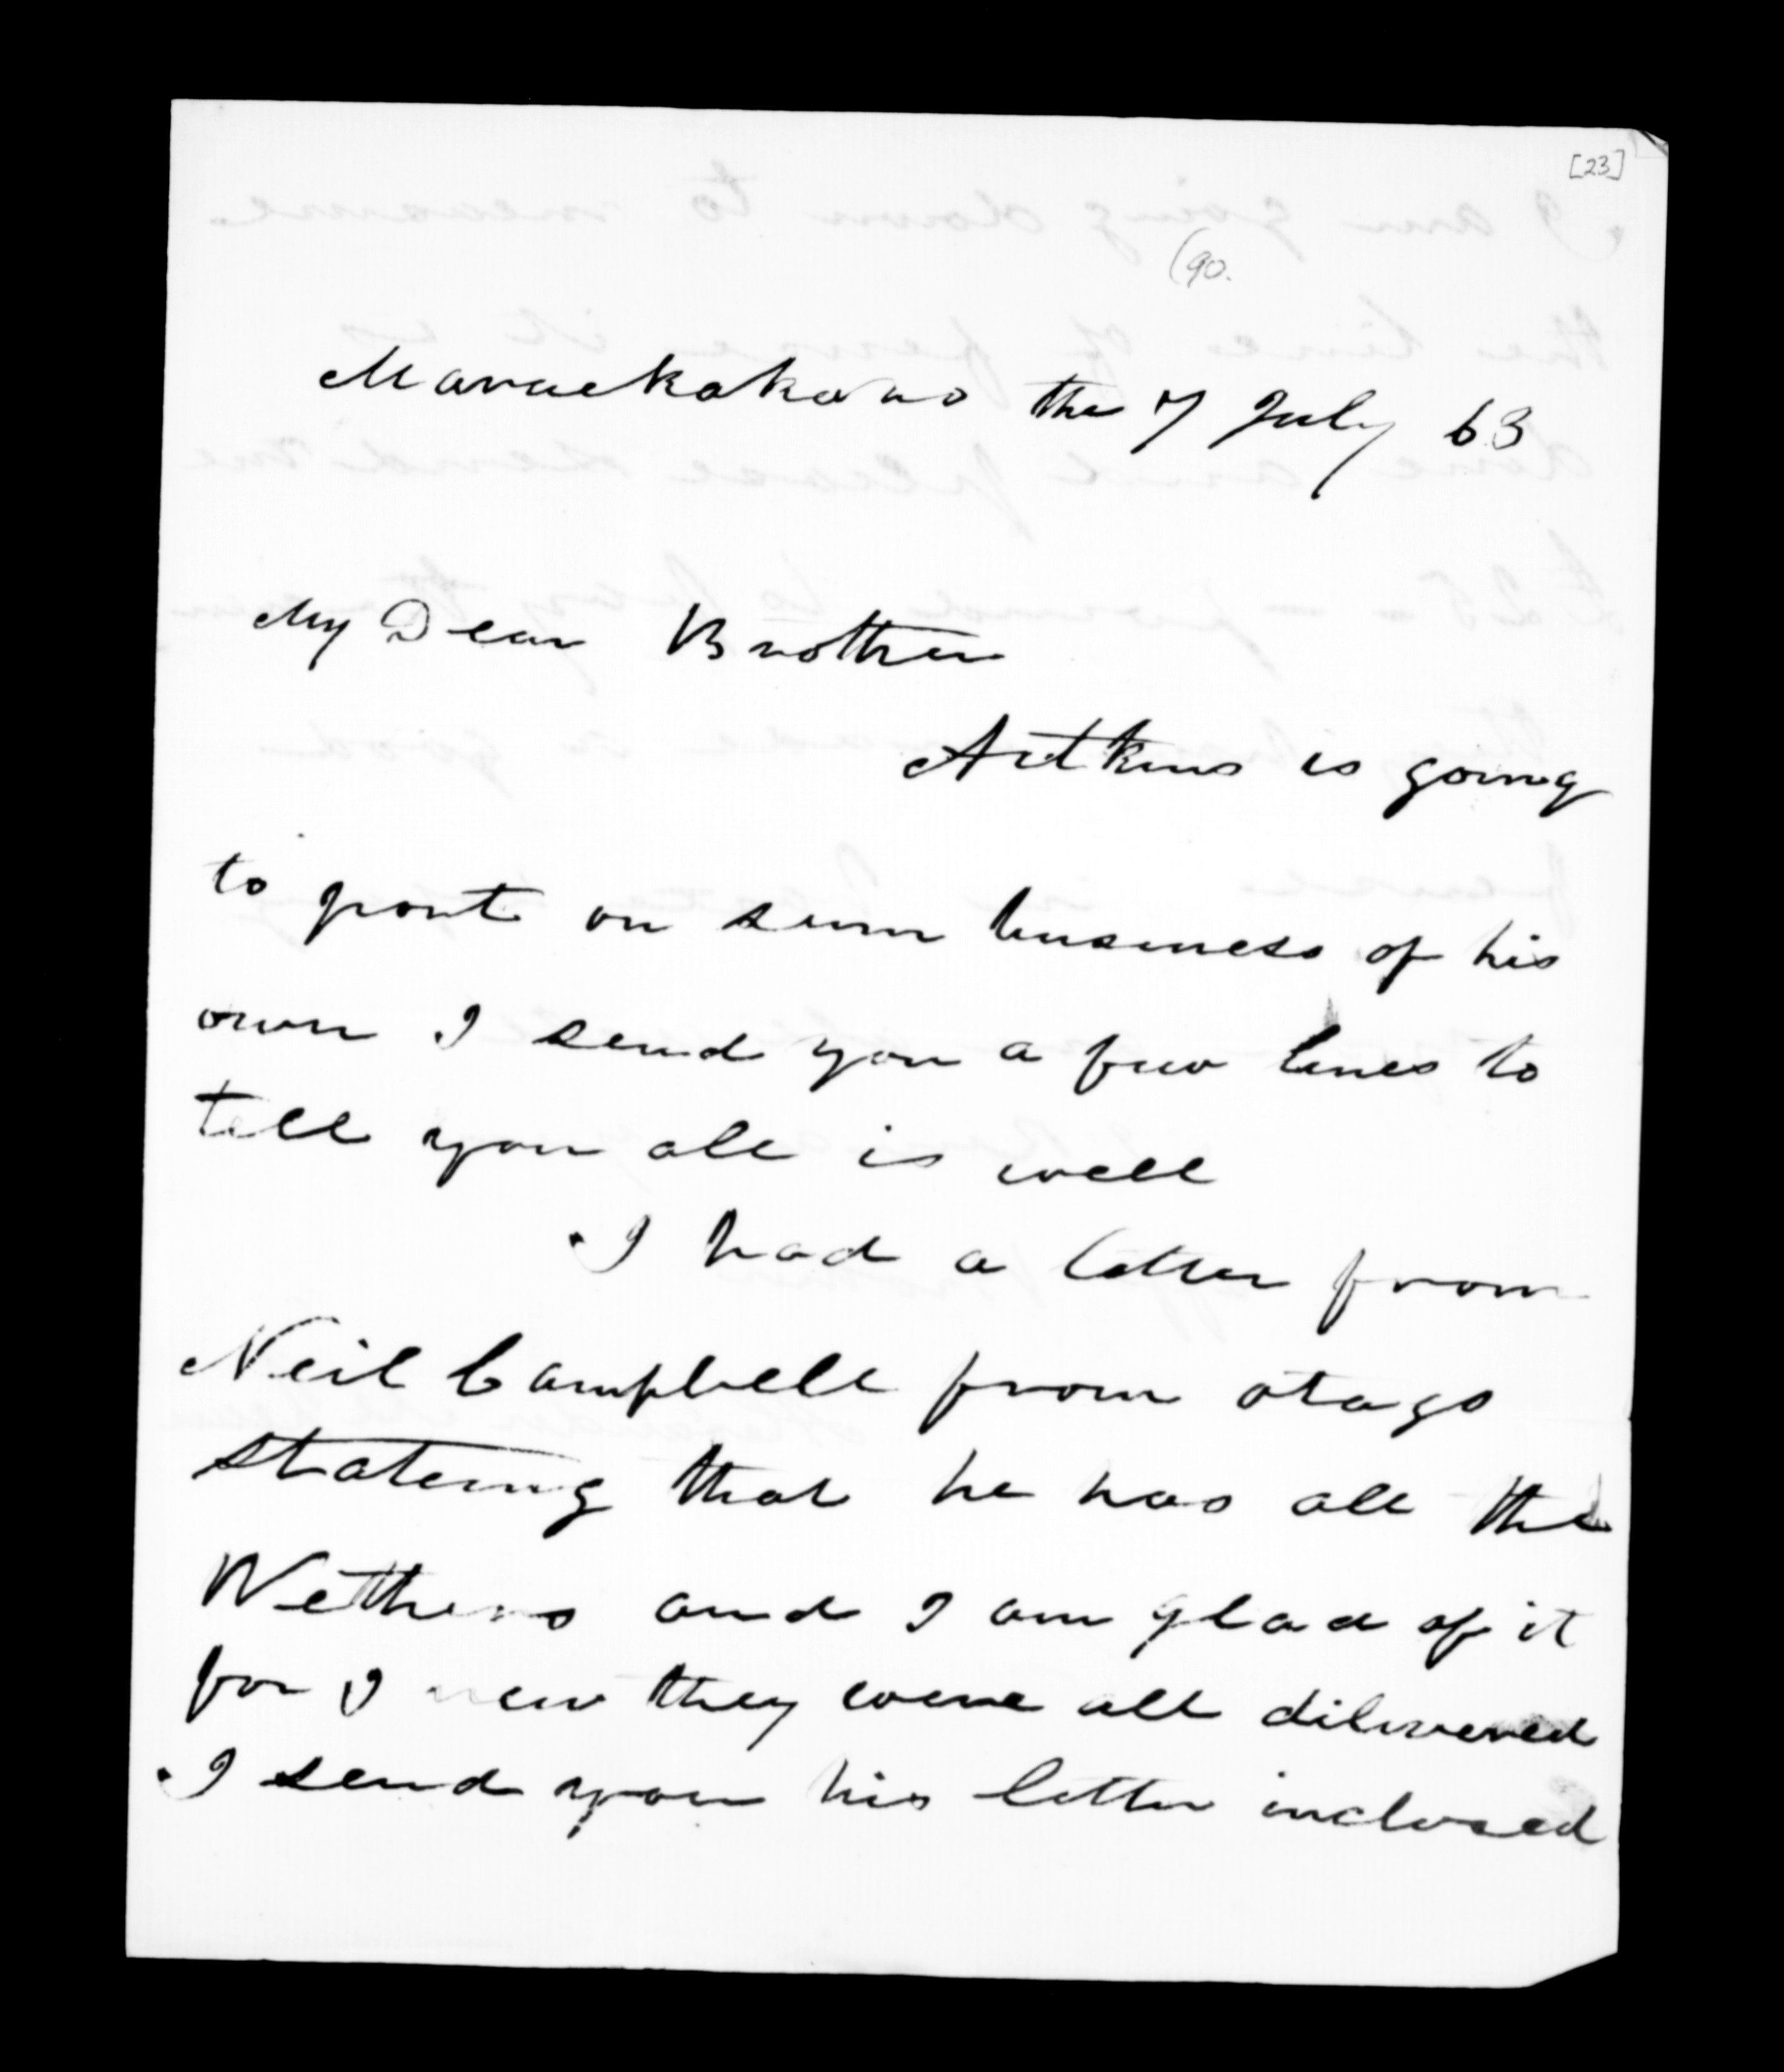 [23]
(90.
Maraekakaho the 7 July 63
My Dear Brother
Aitkins is going
to port on sum business of his
own I send you a few lines to
tell you all is well
I had a letter from
Neil Campbell from otago
stateing that he has all the
Wethers and I am glad of it
for I new they were all dilivered
I send you his letter inclosed